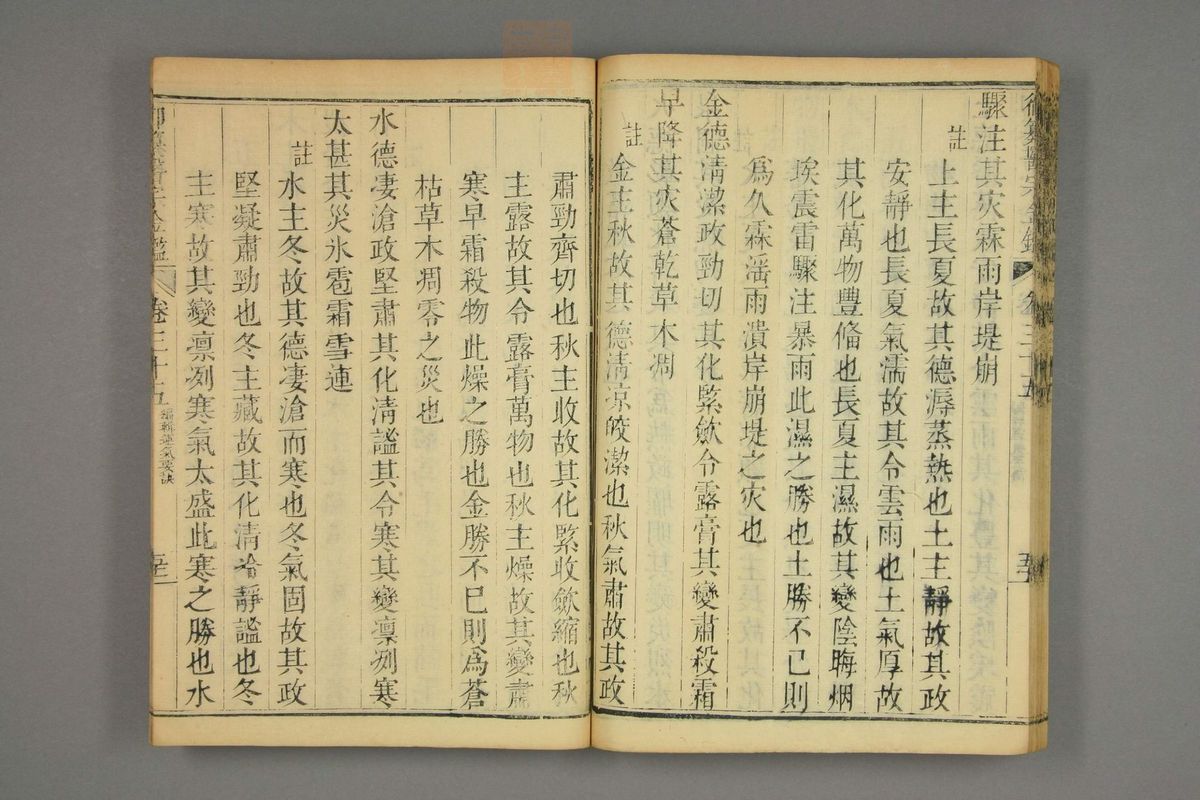 驟注其灾霖雨岸堤崩
註
土主長夏故其德溽蒸熱也土主靜故其政
安靜也長夏氣濡故其令雲雨也土氣厚故
其化萬物豐備也長夏主濕故其變陰晦烟
埃震雷驟注暴雨此濕之勝也土勝不已則
爲久霖淫雨潰岸崩堤之灾也
金德清潔政勁切其化緊斂令露膏其變肅殺霜
早降其灾蒼乾草木凋
註
金主秋故其德清凉皎潔也秋氣肅故其政
肅勁齊切也秋主收故其化緊收斂縮也秋
主露故其令露膏萬物也秋主燥故其變肅
寒早霜殺物此燥之勝也金勝不已則爲蒼
枯草木凋零之災也
水德凄滄政堅肅其化清謐其令寒其變凛冽寒
太甚其災氷雹霜雪連
註
水主冬故其德凄滄而寒也冬氣固故其政
堅凝肅勁也冬主藏故其化清冷靜謐也冬
主寒故其變凛冽寒氣太盛此寒之勝也水
卷三十五
編輯運氣要訣